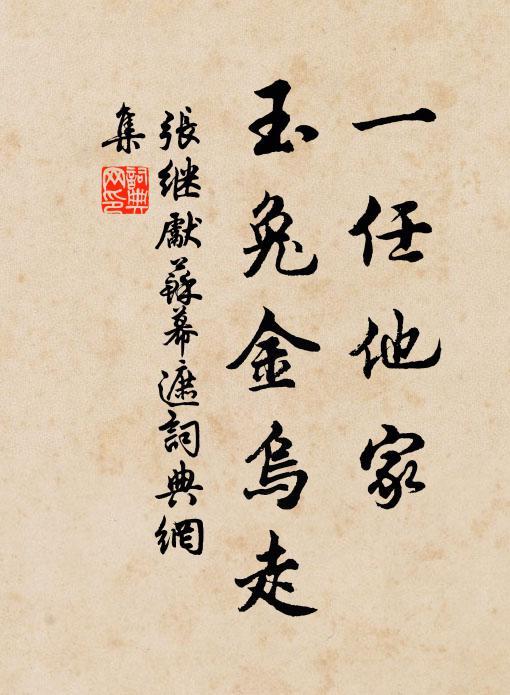 一任他家
玉兔金烏走
張继獻蘇幕遮詞典網
集
詞典
网印